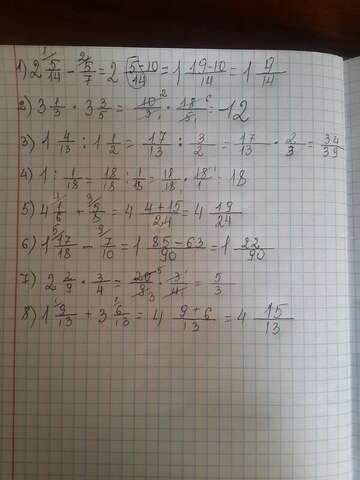 1) 2 5/14 - 5/7 = 2 (5-10)/14 = 1 (19-10)/14 = 1 9/14
2) 3 1/3 · 3 3/5 = 10/3 · 18/5 = 12
3) 1 4/13 : 1 1/2 = 17/13 : 3/2 = 17/13 · 2/3 = 34/39
4) 1 : 1/18 = 18/18 : 1/18 = 18/18 · 18/1 = 18
5) 4 1/6 + 5/8 = 4 (4+15)/24 = 4 19/24
6) 1 17/18 - 7/10 = 1 (85-63)/90 = 1 22/90
7) 2 2/9 · 3/4 = 20/9 · 3/4 = 5/3
8) 1 9/13 + 3 6/13 = 4 (9+6)/13 = 4 15/13